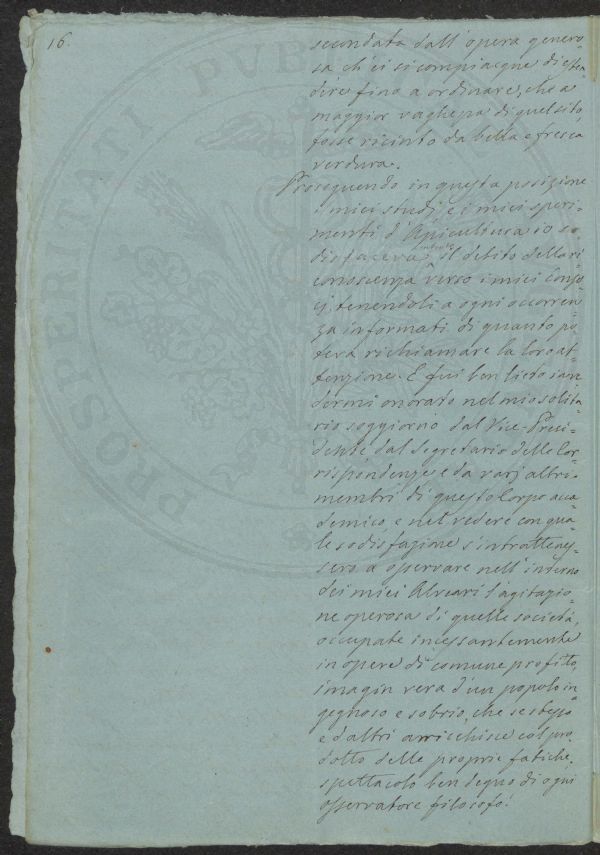 16.
secondata dall'opera genero=
sa ch'ei si compiacque di esten=
dere fino a ordinare, che a
maggior vaghezza di quel sito,
fosse ricinto da bella e fresca
verdura.
Proseguendo in questa posizione
i miei studj, e i miei speri=
menti d'Apicultura io so=
disfaceva intanto il debito della ri
conoscenza verso i miei Conso=
cj, tenendoli a ogni occorren=
za informati di quanto po=
teva richiamare la loro at=
tenzione. E fui ben lieto in
dermi onorato nel mio solita=
rio soggiorno dal Vice-Presi=
dente dal Segretario delle Cor=
rispondenze e da varj altri
membri di questo Corpo acca=
demico, e nel vedere con qua=
le sodisfazione s'intrattenes=
sero a osservare nell'interno
dei miei Alveari l'agitazio=
ne operosa di quelle società,
occupate incessantemente
in opere di comune profitto,
imagin vera d'un popolo in=
gegnoso e sobrio, che se stesso
e d'altri arricchisce col pro=
dotto delle proprie fatiche,
spettacolo ben degno di ogni
osservatore filosofo!
PROSPERITATI PUB